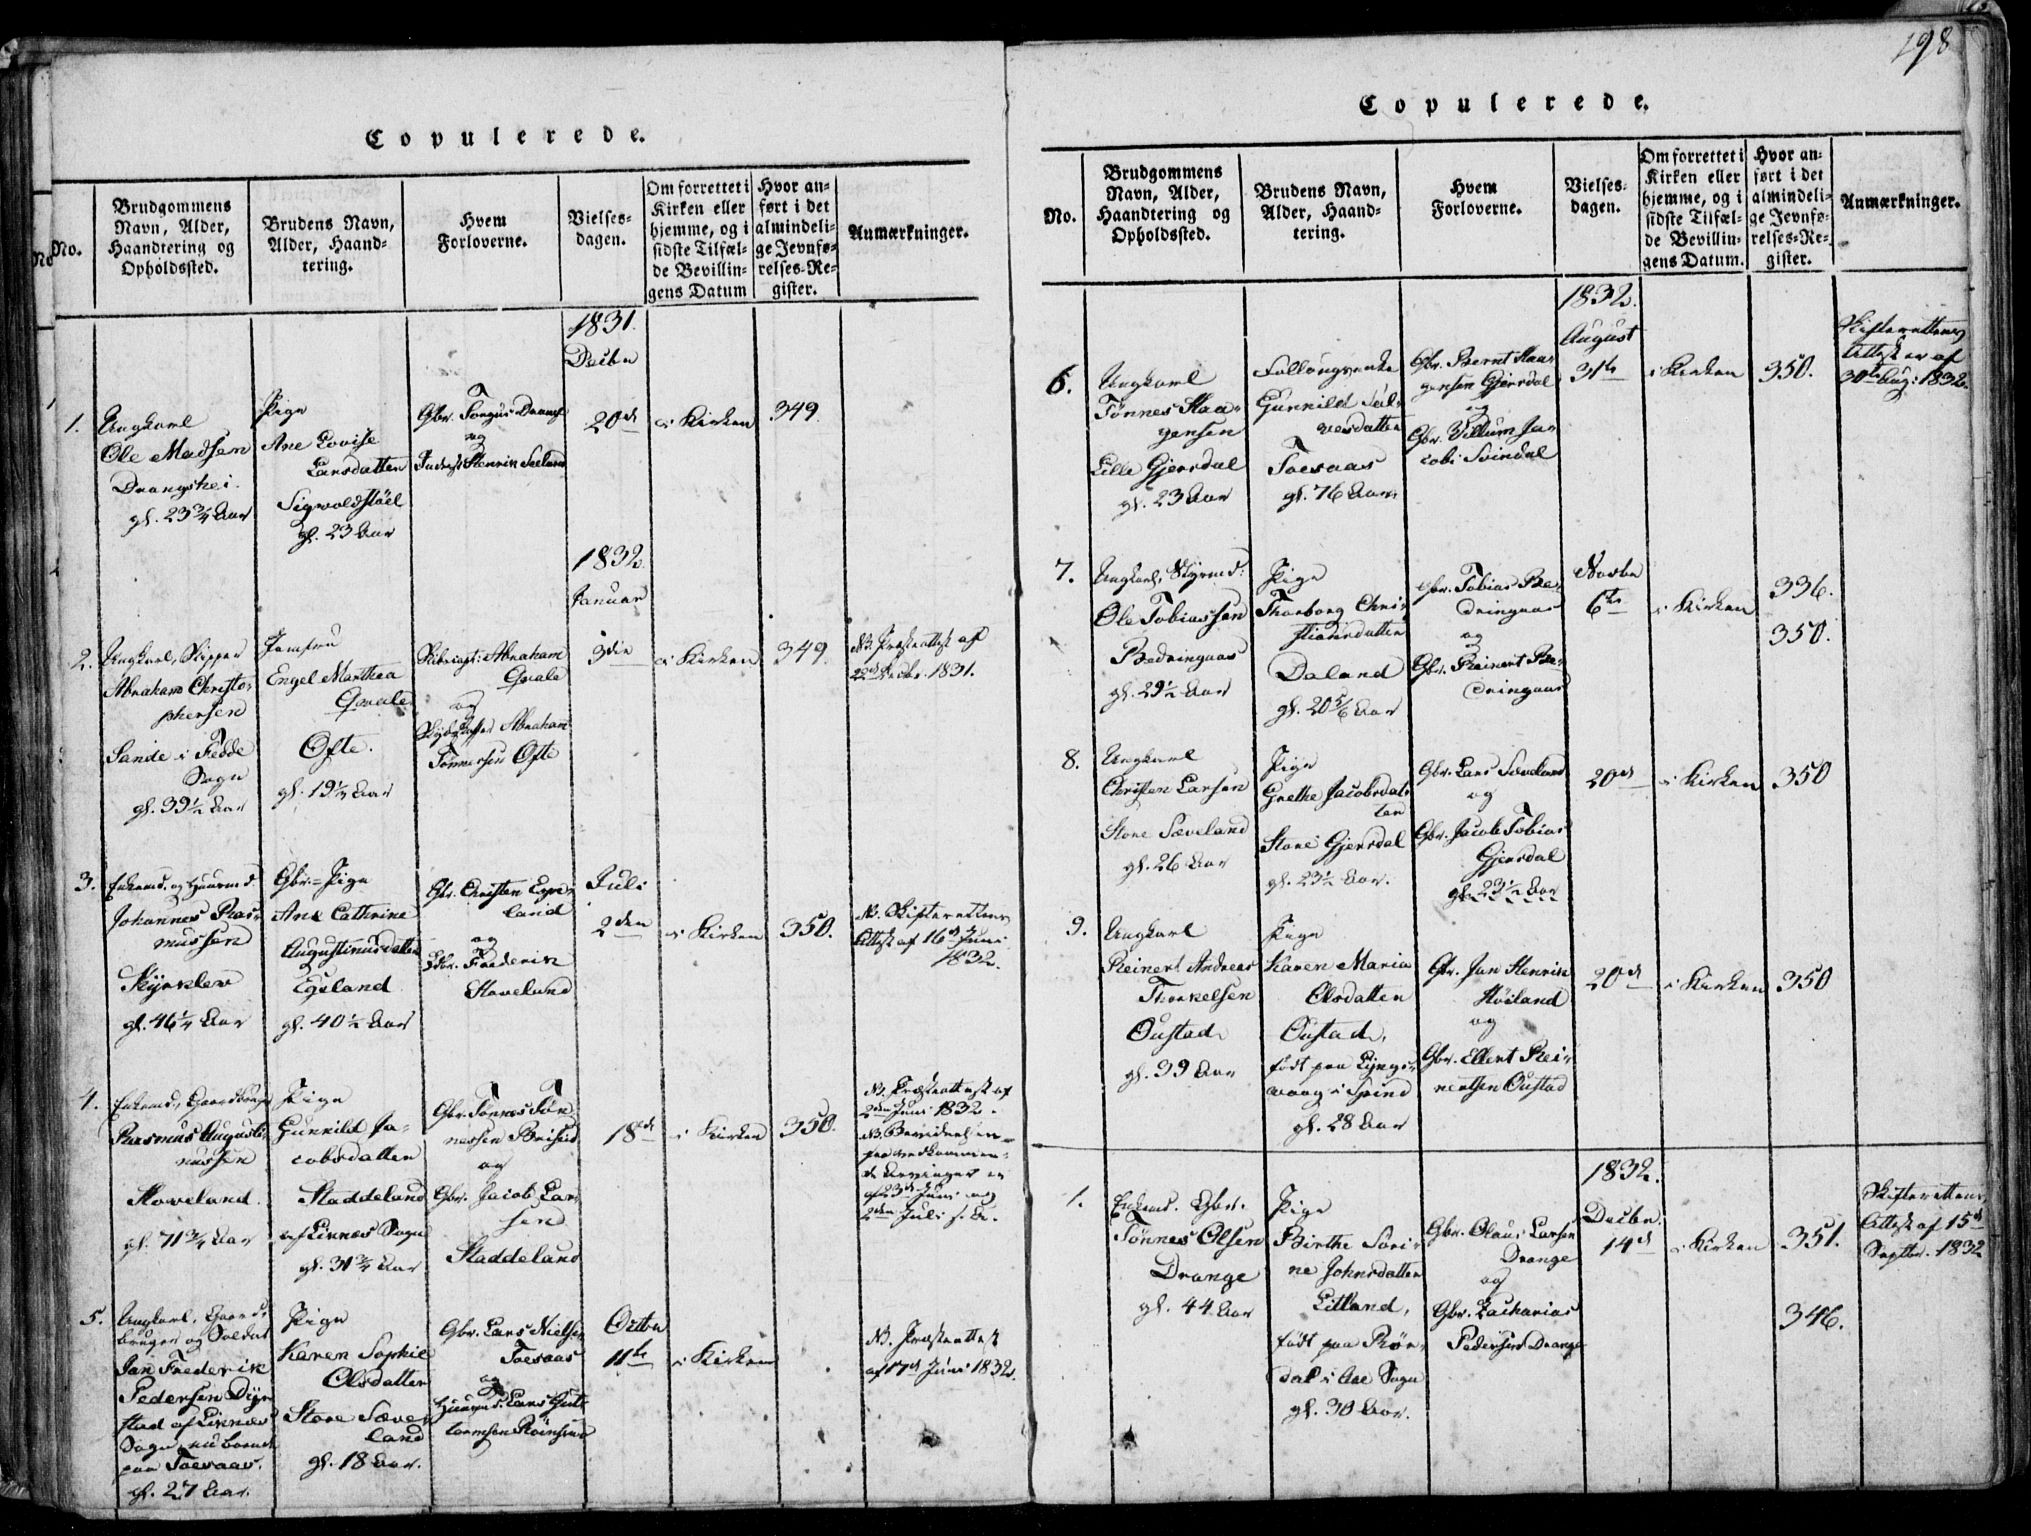 Copulerede.
No.
Brudgommens
Navn, Alder,
Haandtering og
Opholdssted.
Brudens Navn,
Alder, Haand-
tering.
Hvem
Forloverne.
Vielses-
dagen.
Om forrettet i
Kirken eller
hjemme, og i
sidste Tilfæl-
de Bevillin-
gens Datum
Hvor an-
ført i det
almindeli-
ge Jevnfø-
relses-Re-
gister.
Anmærkninger.
1831.
Decbr
1.
Ungkarl
Ole Madsen
Drangshei.
gl. 23 3/4 Aar
Pige
Ane Lovise
Larsdatter
Sigvoldstöel
gl. 23 Aar
og
20de
i Kirken
349.
1832.
Januar
2.
Ungkarl, Skipper
Abraham Christo-
phersen
Sande i Fedde
Sogn
gl. 39 1/2 Aar
Jomfru
Engel Marthea
Qvale
Ofte.
gl. 19 1/4 Aar
Abraham
Qvale
og
Abraham
Tønnessen Ofte
3die
i Kirken
349.
NB. Præsteattest af
22de Decbr. 1831.
3.
Enkemd. og Huusmd.
Johannes Ras-
mussen
gl. 46 1/4 Aar
Gbr. Pige
Ane Cathrine
Augustinusdatter
Egeland
gl. 40 1/2 Aar
Gbr. Christen Ege-
land
og
Gbr. Frederik
Skoveland
Juli
2den
i Kirken
350.
NB. Skifterettens
Attest af 16de Juni
1832.
4.
Enkemd., Gaardbruger
Rasmus Augusti-
nussen
Skoveland.
gl. 71 3/4 Aar
Pige
Gunnild Ja-
cobsdatter
Staddeland
af Lirnæs Sogn
gl. 31 3/4 Aar
Gbr. Tønnes Tøn-
nessen Briseid
og
Gbr. Jacob Lar-
sen
Staddeland
18de
i Kirken
350.
NB. Præsteattest af
2den Juni 1832.
NB.
af 23de Juni og
2den Juli s. A.
5.
Ungkarl, Gaard-
bruger og Soldat
Jan Frederik
Pedersen
Sogn
paa Toesaas.
gl. 27 Aar.
Pige
Karen Sophie
Olsdatter
Store Sæve-
land
gl. 18 Aar.
Gbr. Lars Nielsen
Toesaas
og
Huusmd. Lars Gut-
tormsen
Octbr
11te
i Kirken
NB. Præsteattest
af 17de Juni 1832.
198
Copulerede.
No.
Brudgommens
Navn, Alder,
Haandtering og
Opholdssted.
Brudens Navn,
Alder, Haand-
tering.
Hvem
Forloverne.
Vielses-
dagen.
Om forrettet i
Kirken eller
hjemme, og i
sidste Tilfæl-
de Bevillin-
gens Datum.
Hvor an-
ført i det
almindeli-
ge Jevnfø-
relses-Re-
gister.
Anmærkninger.
1832.
August
6.
Ungkarl
Tønnes Haa-
gensen
Lille Gjersdal
gl. 23 Aar
Gunnild Sal-
vesdatter
Toesaas
gl. 76 Aar.
Gbr. Bernt Haa-
gensen Gjersdal
og
Gbr. Villum Ja-
cobs Svindal
31te
i Kirken
350.
Skifterettens
Attest er af
30te Aug: 1832.
7.
Ungkarl, Styrmd:
Ole Tobiassen
Bedringaas
gl. 29 1/2 Aar
Pige
Thorborg Chri-
stiansdatter
Daland
gl. 20 5/6 Aar
Gbr. Tobias Be-
dringaas
og
Gbr. Reinert Be-
dringaas
Novbr
6te
i Kirken
336.
350.
8.
Ungkarl
Christen Larsen
Store Sæveland
gl. 26 Aar
Pige
Grethe Jacobsdat-
ter
Store Gjersdal
gl. 23 1/2 Aar.
Gbr. Lars Sæveland
og
Gbr. Jacob Tobias
Gjersdal
gl. 23 1/2 Aar
20de
i Kirken
350
9.
Ungkarl
Reinert Andreas
Thorkelsen
Oustad
gl. 39 Aar
Pige
Karen Maria
Olsdatter
Oustad,
født paa Lyngs-
vaag i Spind
gl. 28 Aar
Gbr. Jan Henrik
Höiland
og
Gbr. Ellert Rei-
nertsen Oustad
20de
i Kirken
350
1832.
1.
Enkemd. Gbr.
Tønnes Olsen
Drange
gl. 44 Aar
Pige
Birthe Siri-
ne Johnsdatter
Litland,
født paa Rør-
dal i Aae Sogn
gl. 30 Aar.
Gbr. Olaus Larsen
Drange
og
Gbr. Zacharias
Pedersen Drange
Decbr.
14de
i Kirken
351.
346.
Skifterettens
Attest af 15de
Septbr. 1832